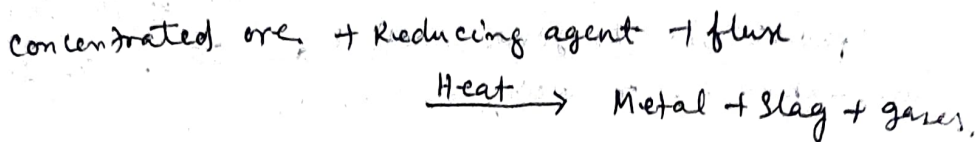 Concentrated ore + Reducing agent + flux
Heat → Metal + Slag + gases.